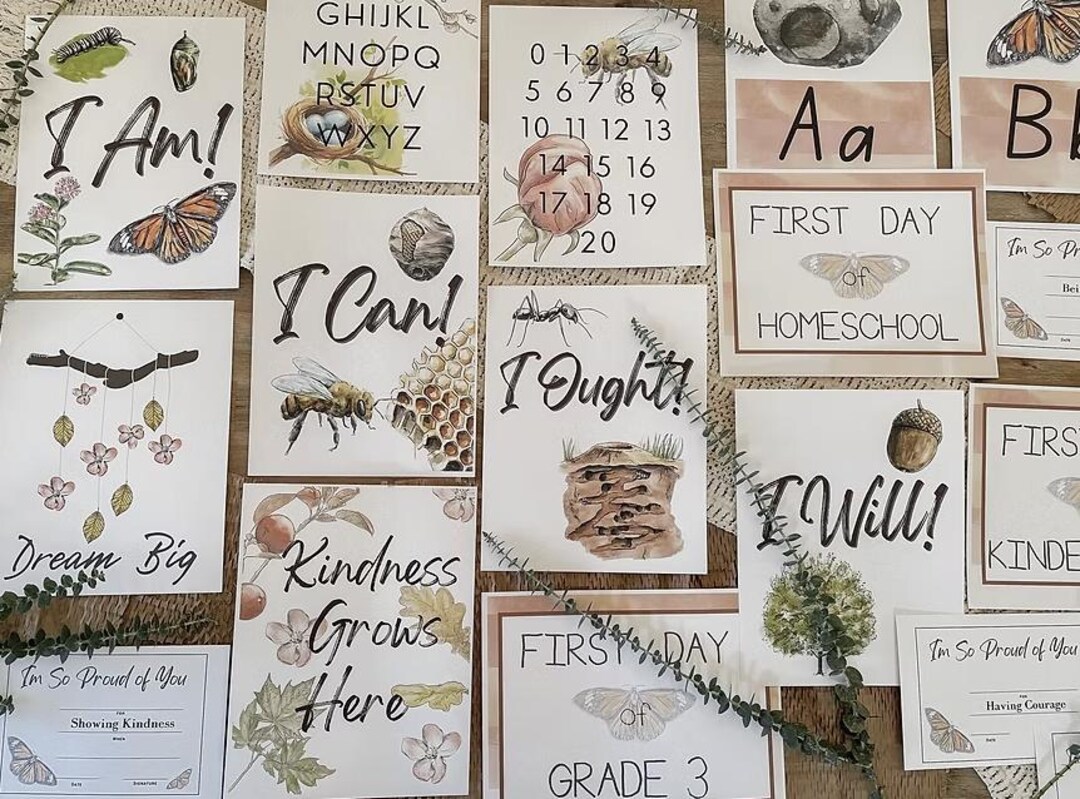 I Am!
GHIJKL
MNOPQ
RSTUV
WXYZ
0 1 2 3 4
5 6 7 8 9
10 11 12 13
14 15 16
17 18 19
20
Aa
B
FIRST DAY
of
HOMESCHOOL
I'm So
Dream Big
I Can!
I Ought!
I Will!
FIRS
KINDE
Kindness
Grows
Here
FIRST DAY
of
GRADE 3
I'm So Proud of You
FOR
Showing Kindness
WHEN
DATE SIGNATURE
I'm So Proud of You
FOR
Having Courage
DATE